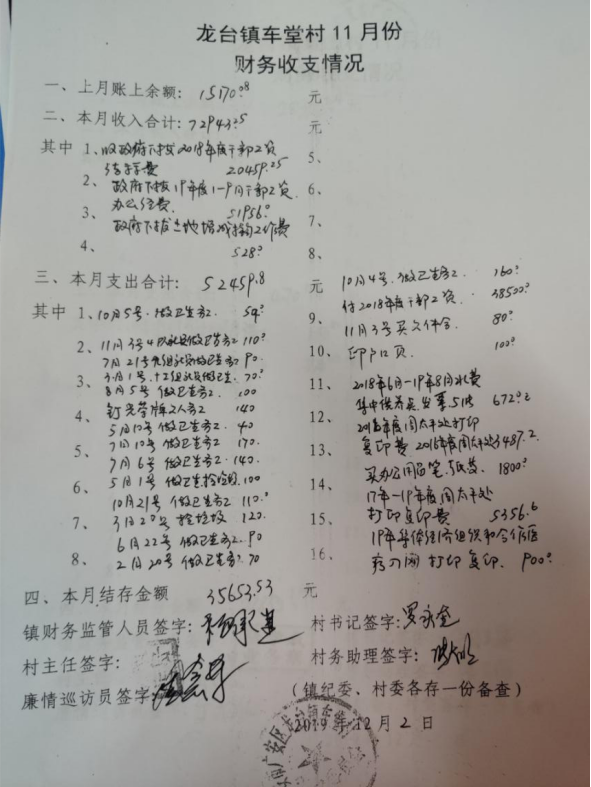 龙台镇车堂村11月份
财务收支情况
一、上月账上余额: 15170.08 元
二、本月收入合计: 72943.5 元
其中 1、收政府下拨2018年度干部工资
20459.25
2、政府下拨19年度1-9月干部工资
办公经费 51956.0
3、政府下拨土地增减挂钩工作费
4、 528.0
5、
6、
7、
8、
三、本月支出合计: 52459.8 元
其中 1、10月5号,做卫生务工 50.0
2、11月3号 做卫生务工 110.0
7月21号 组 做卫生务工 90.
3、3月1号,十工组 做卫生 70.0
8月5号 做卫生务工 100
4、钉光荣牌2人务工 140
5月10号 做卫生务工 40
5、7月10号 做卫生务工 170.
7月6号 做卫生务工 140.
6、5月1号 做卫生捡垃圾 100
10月21号 做卫生务工 110.0
7、3月20号 捡垃圾 120.
6月22号 做卫生务工 90
8、2月20号 做卫生务工 70
10月4号,做卫生务工 160.0
付2018年度干部工资 38500.0
9、11月3号买文件盒 80.0
10、印户口页 100.0
11、2018年6月-19年8月水费
集中供养点 发票5张 672.2
12、2016年度周太平处打印
复印费 2016年度周太平处3487.2
13、买办公用品笔、纸费 1800.0
14、17年-19年度周太平处
15、打印复印费 5356.6
19年集体经济组织和合作医
16、疗 打印复印 900.0
四、本月结存金额 35653.53 元
镇财务监管人员签字:
村书记签字:
村主任签字:
村务助理签字:
廉情巡访员签字
(镇纪委、村委各存一份备查)
2019年12月2日